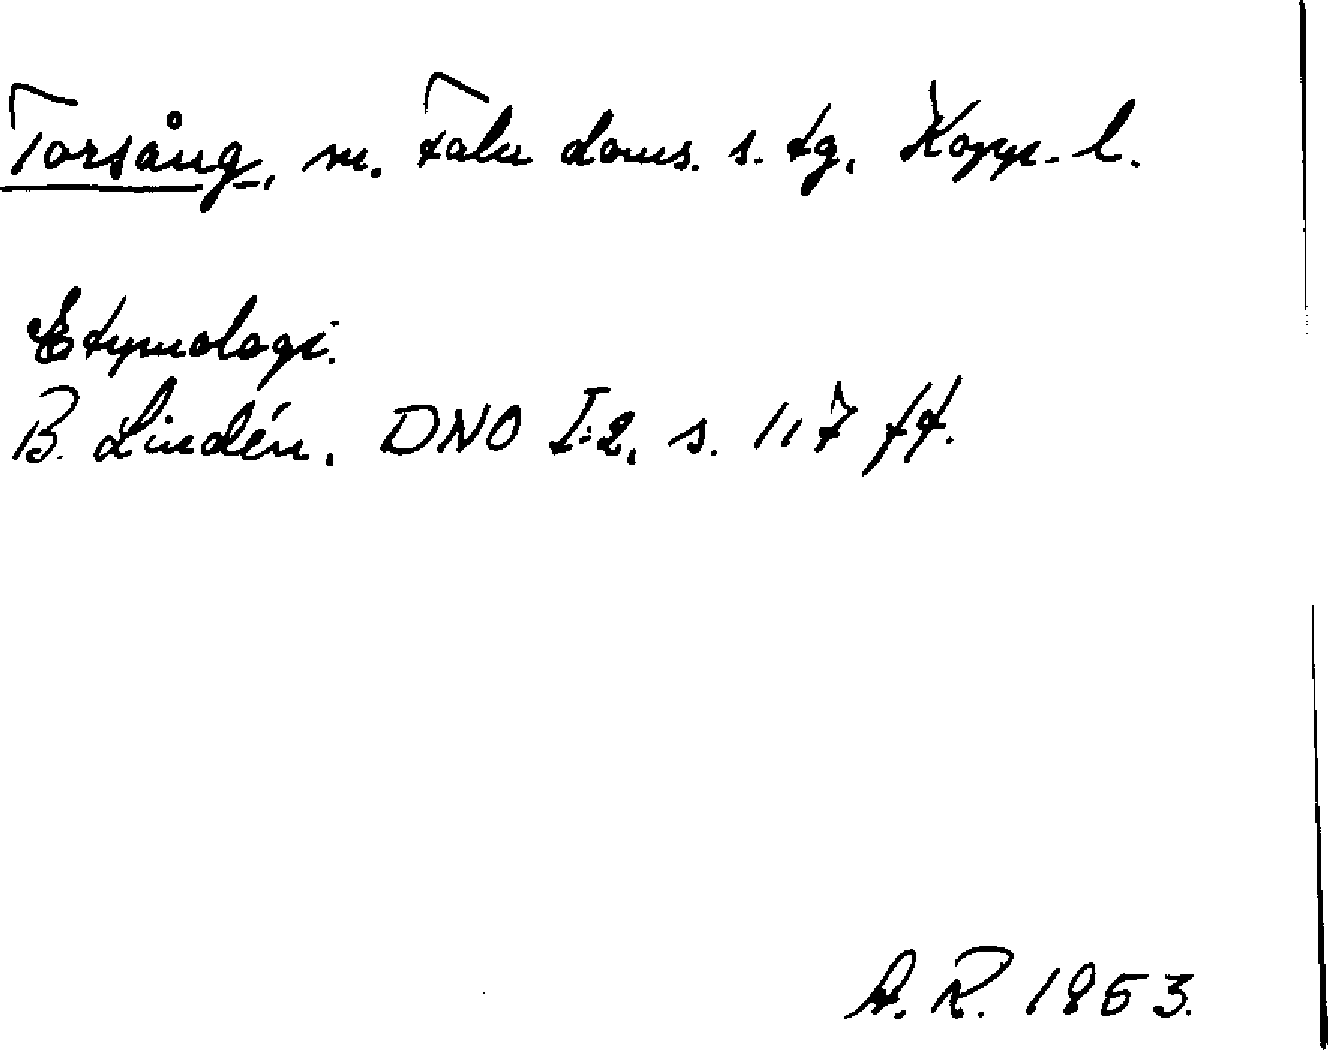 Torsång, m. Falu doms. s. tg. Kopp. l.
Etymologi.
B. Lindén, DNO I:2, s. 117 ff.
A. R. 1953.